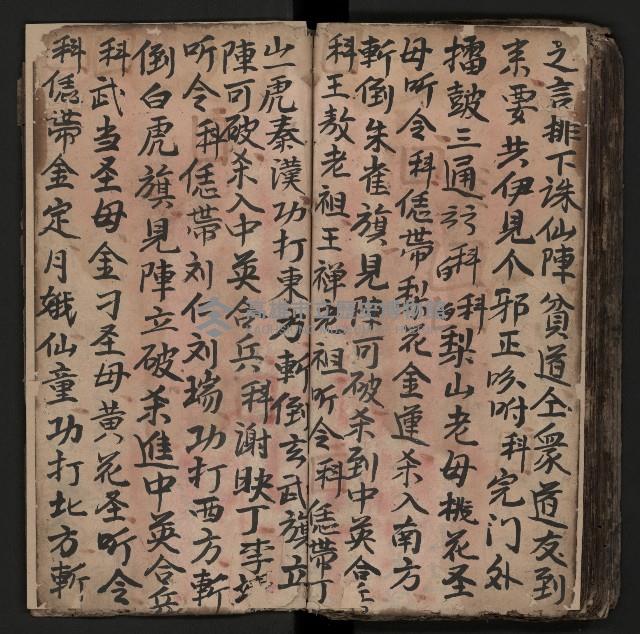 之言排下誅仙陣貧道仝衆道友到
来要共伊見个邪正吩咐科完门外
擂鼓三通
科梨山老母桃花圣
母听令科俖帶梨花金蓮杀入南方
斬倒朱雀旗見陣可破杀到中英合
科王敖老祖王禅老祖听令科俖帶丁
山一虎秦漢功打東方斬倒玄武旗立
陣可破杀入中英合兵科謝映丁李
听令科俖帶刘仁刘瑞功打西方斬
倒白虎旗見陣立破杀進中英合兵
科武当圣母金刁圣母黄花圣听令
科俖帶金定月娥仙童功打北方斬
高雄市立歷史博物館